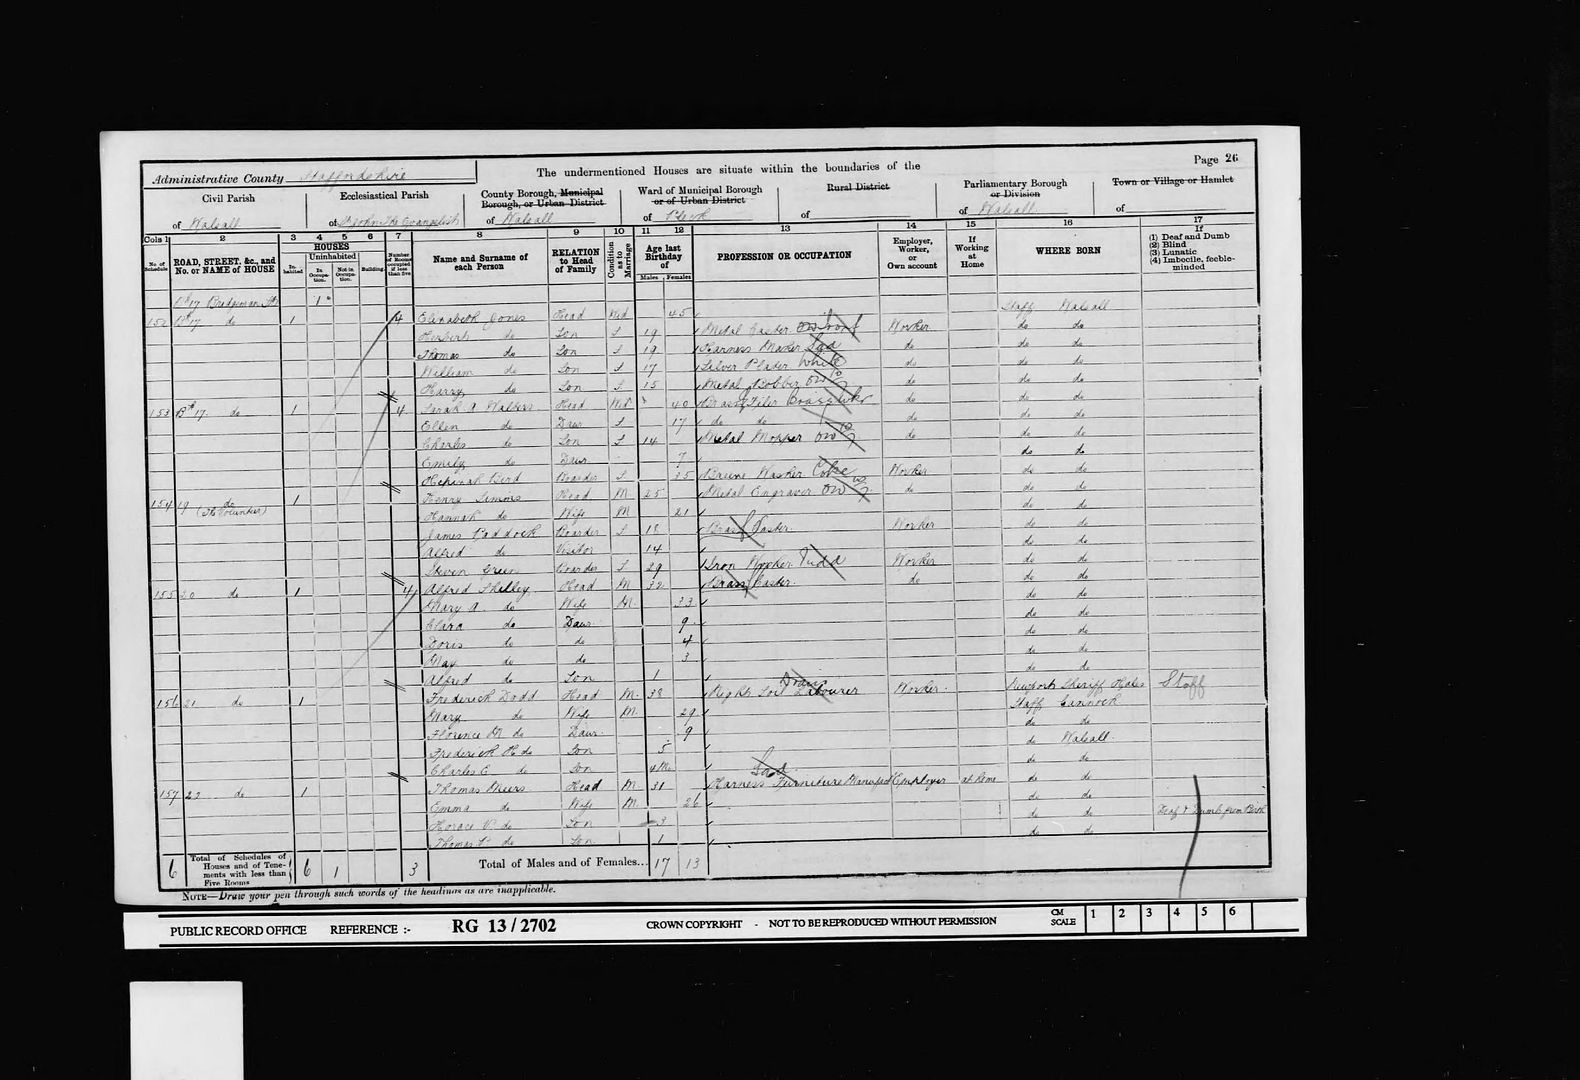 Page 26
The undermentioned Houses are situate within the boundaries of the
Administrative County Staffordshire
Civil Parish
of Walsall
Ecclesiastical Parish
of St John The Evangelist
County Borough, Municipal Borough, or Urban District
of Walsall
Ward of Municipal Borough or of Urban District
of
Rural District
of
Parliamentary Borough or Division
of Walsall
Town or Village or Hamlet
of
Cols 1 2 3 4 5 6 7 8 9 10 11 12 13 14 15 16 17
No. of Schedule
ROAD, STREET, &c., and No. or NAME of HOUSE
HOUSES
Inhabited
Uninhabited
In Occupation.
Not in Occupation.
Building.
Number of Rooms occupied if less than five
Name and Surname of each Person
RELATION to Head of Family
Condition as to Marriage
Age last Birthday of
Males Females
PROFESSION OR OCCUPATION
Employer, Worker, or Own account
If Working at Home
WHERE BORN
If
(1) Deaf and Dumb
(2) Blind
(3) Lunatic
(4) Imbecile, feeble-minded
17 Bridgeman St 1
152 17 do 1 4 Elizabeth Jones Head Wd 45 Staff Walsall
Herbert do Son S 19 Metal Caster Worker do do
Thomas do Son S 19 Harness Maker do do do
William do Son S 17 Silver Plater do do do
Harry do Son S 15 Metal do do do
153 17 do 1 4 Sarah A Walters Head Wd 40 Brass Filer do do do
Ellen do Daur S 17 do do do do do
Charles do Son S 14 Metal Mopper do do do
Emily do Daur 7 do do
Bird Boarder S 35 Worker do do
154 19 do (The Volunteer) 1 Henry Simms Head M 25 Metal Engraver do do do
Hannah do Wife M 21 do do
James Paddock Boarder S 18 Brass Caster Worker do do
Alfred do Visitor 14 do do
Green Boarder S 29 Iron Worker Worker do do
155 20 do 1 4 Alfred Shelley Head M 32 Brass Caster do do do
Mary A do Wife M 33 do do
Clara do Daur 9 do do
Doris do do 4 do do
May do do 3 do do
Alfred do Son 1 do do
156 21 do 1 Frederick Dodd Head M 38 Night Soil Labourer Worker Newport Sheriff Hales Staff
Mary do Wife M 29 Staff Cannock
Florence M do Daur 9 do do
Frederick H do Son 5 do Walsall
Charles E do Son 4 Mo do do
157 23 do 1 Thomas Head M 31 Harness Furniture Employer at home do do
Emma do Wife M 26 do do
Horace do Son 3 do do Deaf & Dumb from Birth
Thomas do Son 1 do do
6 Total of Schedules of Houses and of Tenements with less than Five Rooms 6 1 3 Total of Males and of Females... 17 13
NOTE—Draw your pen through such words of the headings as are inapplicable.
PUBLIC RECORD OFFICE REFERENCE :- RG 13 / 2702 CROWN COPYRIGHT - NOT TO BE REPRODUCED WITHOUT PERMISSION CM SCALE 1 2 3 4 5 6